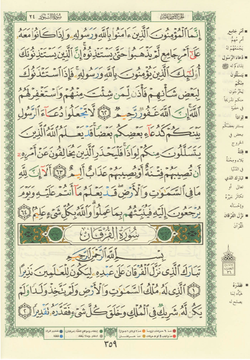 إِنَّمَا ٱلْمُؤْمِنُونَ ٱلَّذِينَ ءَامَنُوا۟ بِٱللَّهِ وَرَسُولِهِۦ وَإِذَا كَانُوا۟ مَعَهُۥ
عَلَىٰٓ أَمْرٍ جَامِعٍ لَّمْ يَذْهَبُوا۟ حَتَّىٰ يَسْتَـْٔذِنُوهُ إِنَّ ٱلَّذِينَ يَسْتَـْٔذِنُونَكَ
أُو۟لَـٰٓئِكَ ٱلَّذِينَ يُؤْمِنُونَ بِٱللَّهِ وَرَسُولِهِۦ فَإِذَا ٱسْتَـْٔذَنُوكَ
لِبَعْضِ شَأْنِهِمْ فَأْذَن لِّمَن شِئْتَ مِنْهُمْ وَٱسْتَغْفِرْ لَهُمُ
ٱللَّهَ إِنَّ ٱللَّهَ غَفُورٌ رَّحِيمٌ ٦٢ لَّا تَجْعَلُوا۟ دُعَآءَ ٱلرَّسُولِ
بَيْنَكُمْ كَدُعَآءِ بَعْضِكُم بَعْضًا قَدْ يَعْلَمُ ٱللَّهُ ٱلَّذِينَ
يَتَسَلَّلُونَ مِنكُمْ لِوَاذًا فَلْيَحْذَرِ ٱلَّذِينَ يُخَالِفُونَ عَنْ أَمْرِهِۦٓ
أَن تُصِيبَهُمْ فِتْنَةٌ أَوْ يُصِيبَهُمْ عَذَابٌ أَلِيمٌ ٦٣ أَلَآ إِنَّ لِلَّهِ
مَا فِى ٱلسَّمَـٰوَٰتِ وَٱلْأَرْضِ قَدْ يَعْلَمُ مَآ أَنتُمْ عَلَيْهِ وَيَوْمَ
يُرْجَعُونَ إِلَيْهِ فَيُنَبِّئُهُم بِمَا عَمِلُوا۟ وَٱللَّهُ بِكُلِّ شَىْءٍ عَلِيمٌۢ ٦٤
سُورَةُ الْفُرْقَانِ
بِسْمِ ٱللَّهِ ٱلرَّحْمَـٰنِ ٱلرَّحِيمِ
تَبَارَكَ ٱلَّذِى نَزَّلَ ٱلْفُرْقَانَ عَلَىٰ عَبْدِهِۦ لِيَكُونَ لِلْعَـٰلَمِينَ نَذِيرًا
١ ٱلَّذِى لَهُۥ مُلْكُ ٱلسَّمَـٰوَٰتِ وَٱلْأَرْضِ وَلَمْ يَتَّخِذْ وَلَدًا وَلَمْ
يَكُن لَّهُۥ شَرِيكٌ فِى ٱلْمُلْكِ وَخَلَقَ كُلَّ شَىْءٍ فَقَدَّرَهُۥ تَقْدِيرًا ٢
٣٥٩